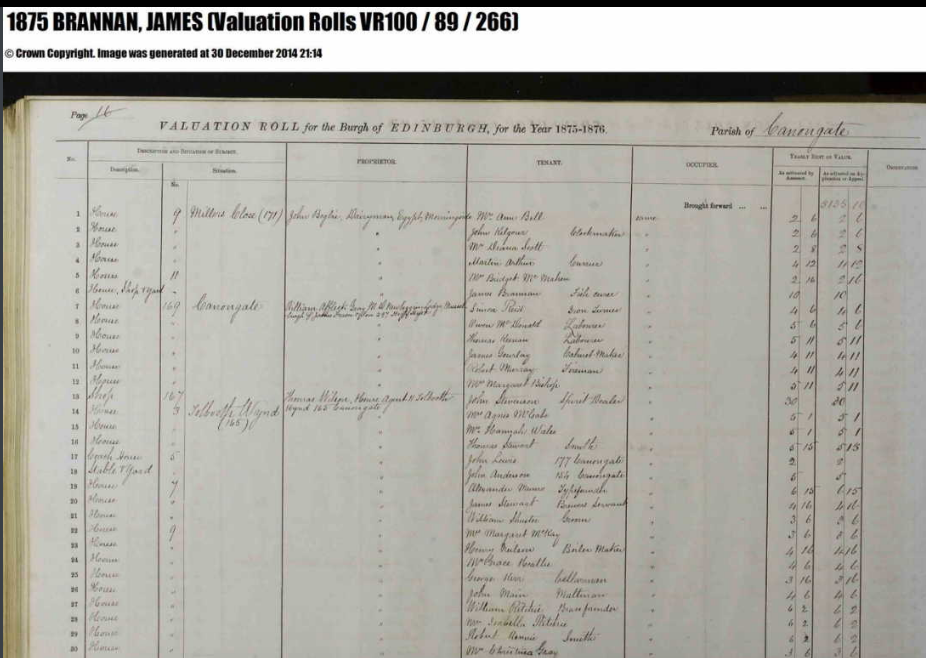 1875 BRANNAN, JAMES (Valuation Rolls VR100 / 89 / 266)
© Crown Copyright. Image was generated at 30 December 2014 21:14
Page 16
VALUATION ROLL for the Burgh of EDINBURGH, for the Year 1875-1876.
Parish of Canongate
No.
DESCRIPTION AND SITUATION OF SUBJECT.
PROPRIETOR.
TENANT.
OCCUPIER.
YEARLY RENT OR VALUE.
Description.
Situation.
No.
Brought forward ... ...
1 House 9 Millers Close (171) John Mrs. Ann Bell same 2 6 2 6
2 House " " John Kilgour Clockmaker " 2 6 2 6
3 House " " Mrs Scott " 2 8 2 8
4 House " " Martin Arthur Currier " 4 12 4 12
5 House 11 " Mrs Bridget McMahon " 2 16 2 16
6 House, Shop & Yard " James Brannan " 10 10
7 House 169 Canongate William Reid " 4 6 4 6
8 House " " Owen McDonald Labourer " 5 6 5 6
9 House " " Thomas Labourer " 5 11 5 11
10 House " " James Gourlay Cabinet Maker " 4 11 4 11
11 House " " Robert Murray Foreman " 4 11 4 11
12 House " " Mrs Margaret Bishop " 5 11 5 11
13 Shop 167 Thomas Wilson, House Agent 11 Tolbooth John Stevenson Spirit Dealer " 30 30
14 House 3 Tolbooth Wynd Wynd 165 Canongate Mrs Agnes " 5 1 5 1
15 House " (165) " Mrs. Hannah Wales " 5 1 5 1
16 House " " Thomas Stewart Smith " 5 15 5 15
17 Coach House 5 " John Lewis 177 Canongate " 2 2
18 Stable & Yard " " John Anderson 154 Canongate " 5 5
19 House 7 " Alexander Munro Typefounder " 6 15 6 15
20 House " " James Stewart Servant " 4 16 4 16
21 House " " William Groom " 3 6 3 6
22 House 9 " Mrs Margaret McKay " 3 6 3 6
23 House " " Henry Boiler Maker " 4 16 4 16
24 House " " Mrs Grace " 4 6 4 6
25 House " " George Muir Cellarman " 3 16 3 16
26 House " " John Main Maltman " 4 6 4 6
27 House " " William Ritchie Brassfounder " 6 2 6 2
28 House " " Mrs Isabella Ritchie " 6 2 6 2
29 House " " Robert Rennie Smith " 6 2 6 2
30 House " " Mrs Christina Gray " 3 6 3 6